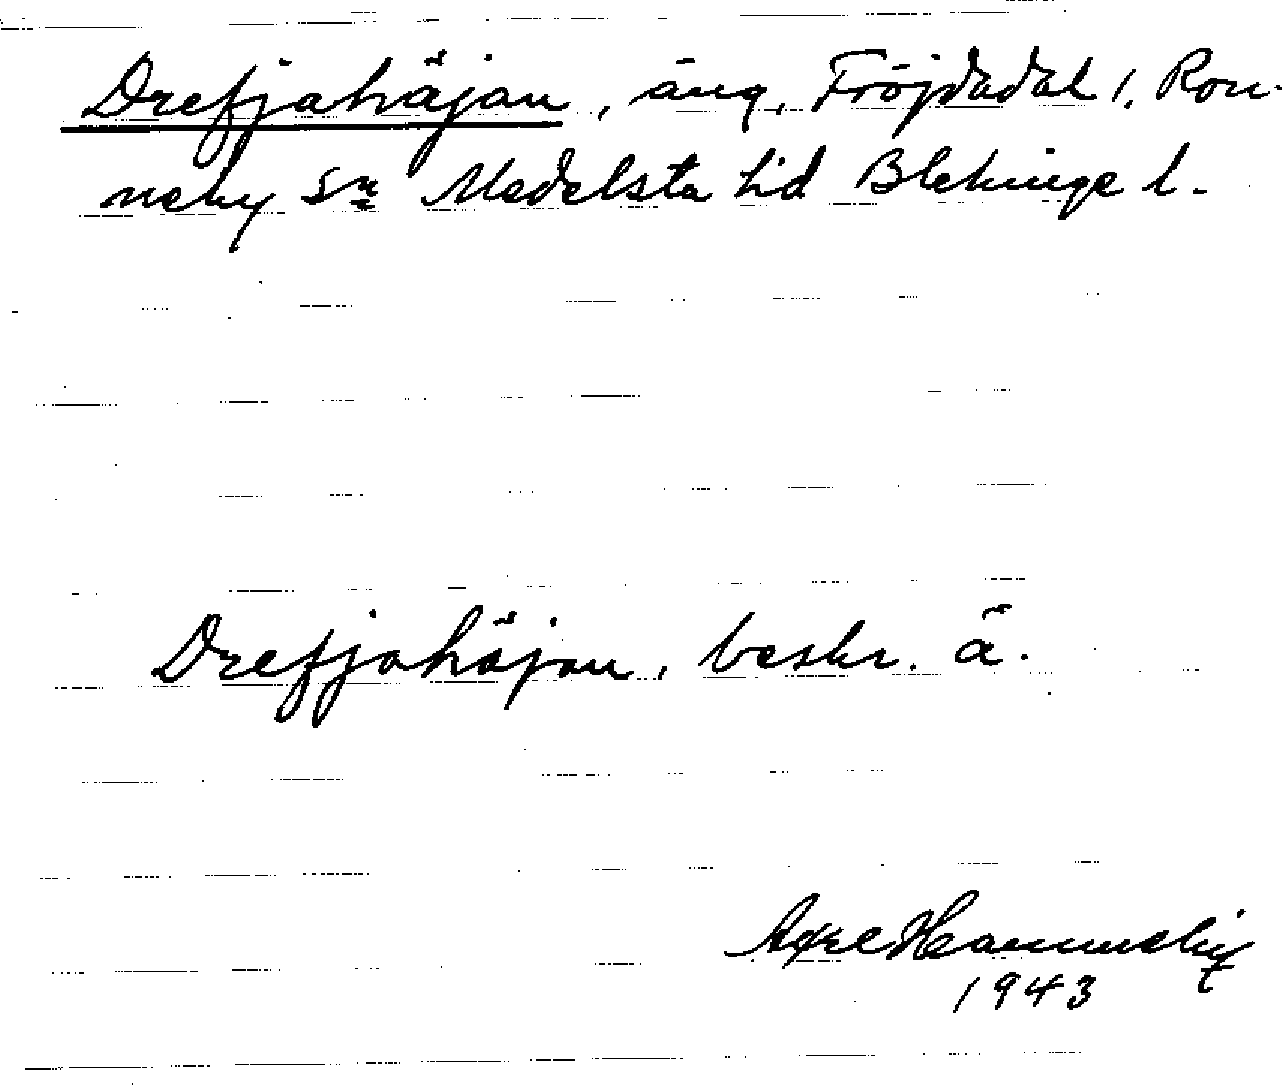 Drefjahäjan, äng, Fröjdadal 1, Ron-
neby sn Medelsta hd Blekinge l.
Drefjahäjan, beskr. ä.
Axel
1943